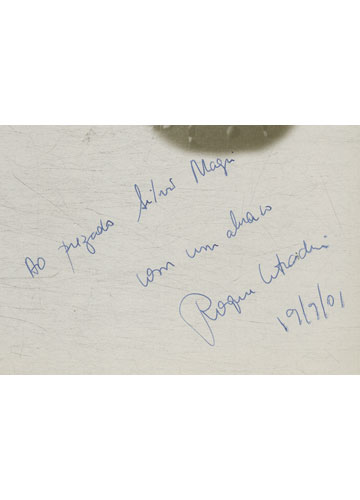 Ao prezado Silvio
com um abraço
Roque
19/9/01